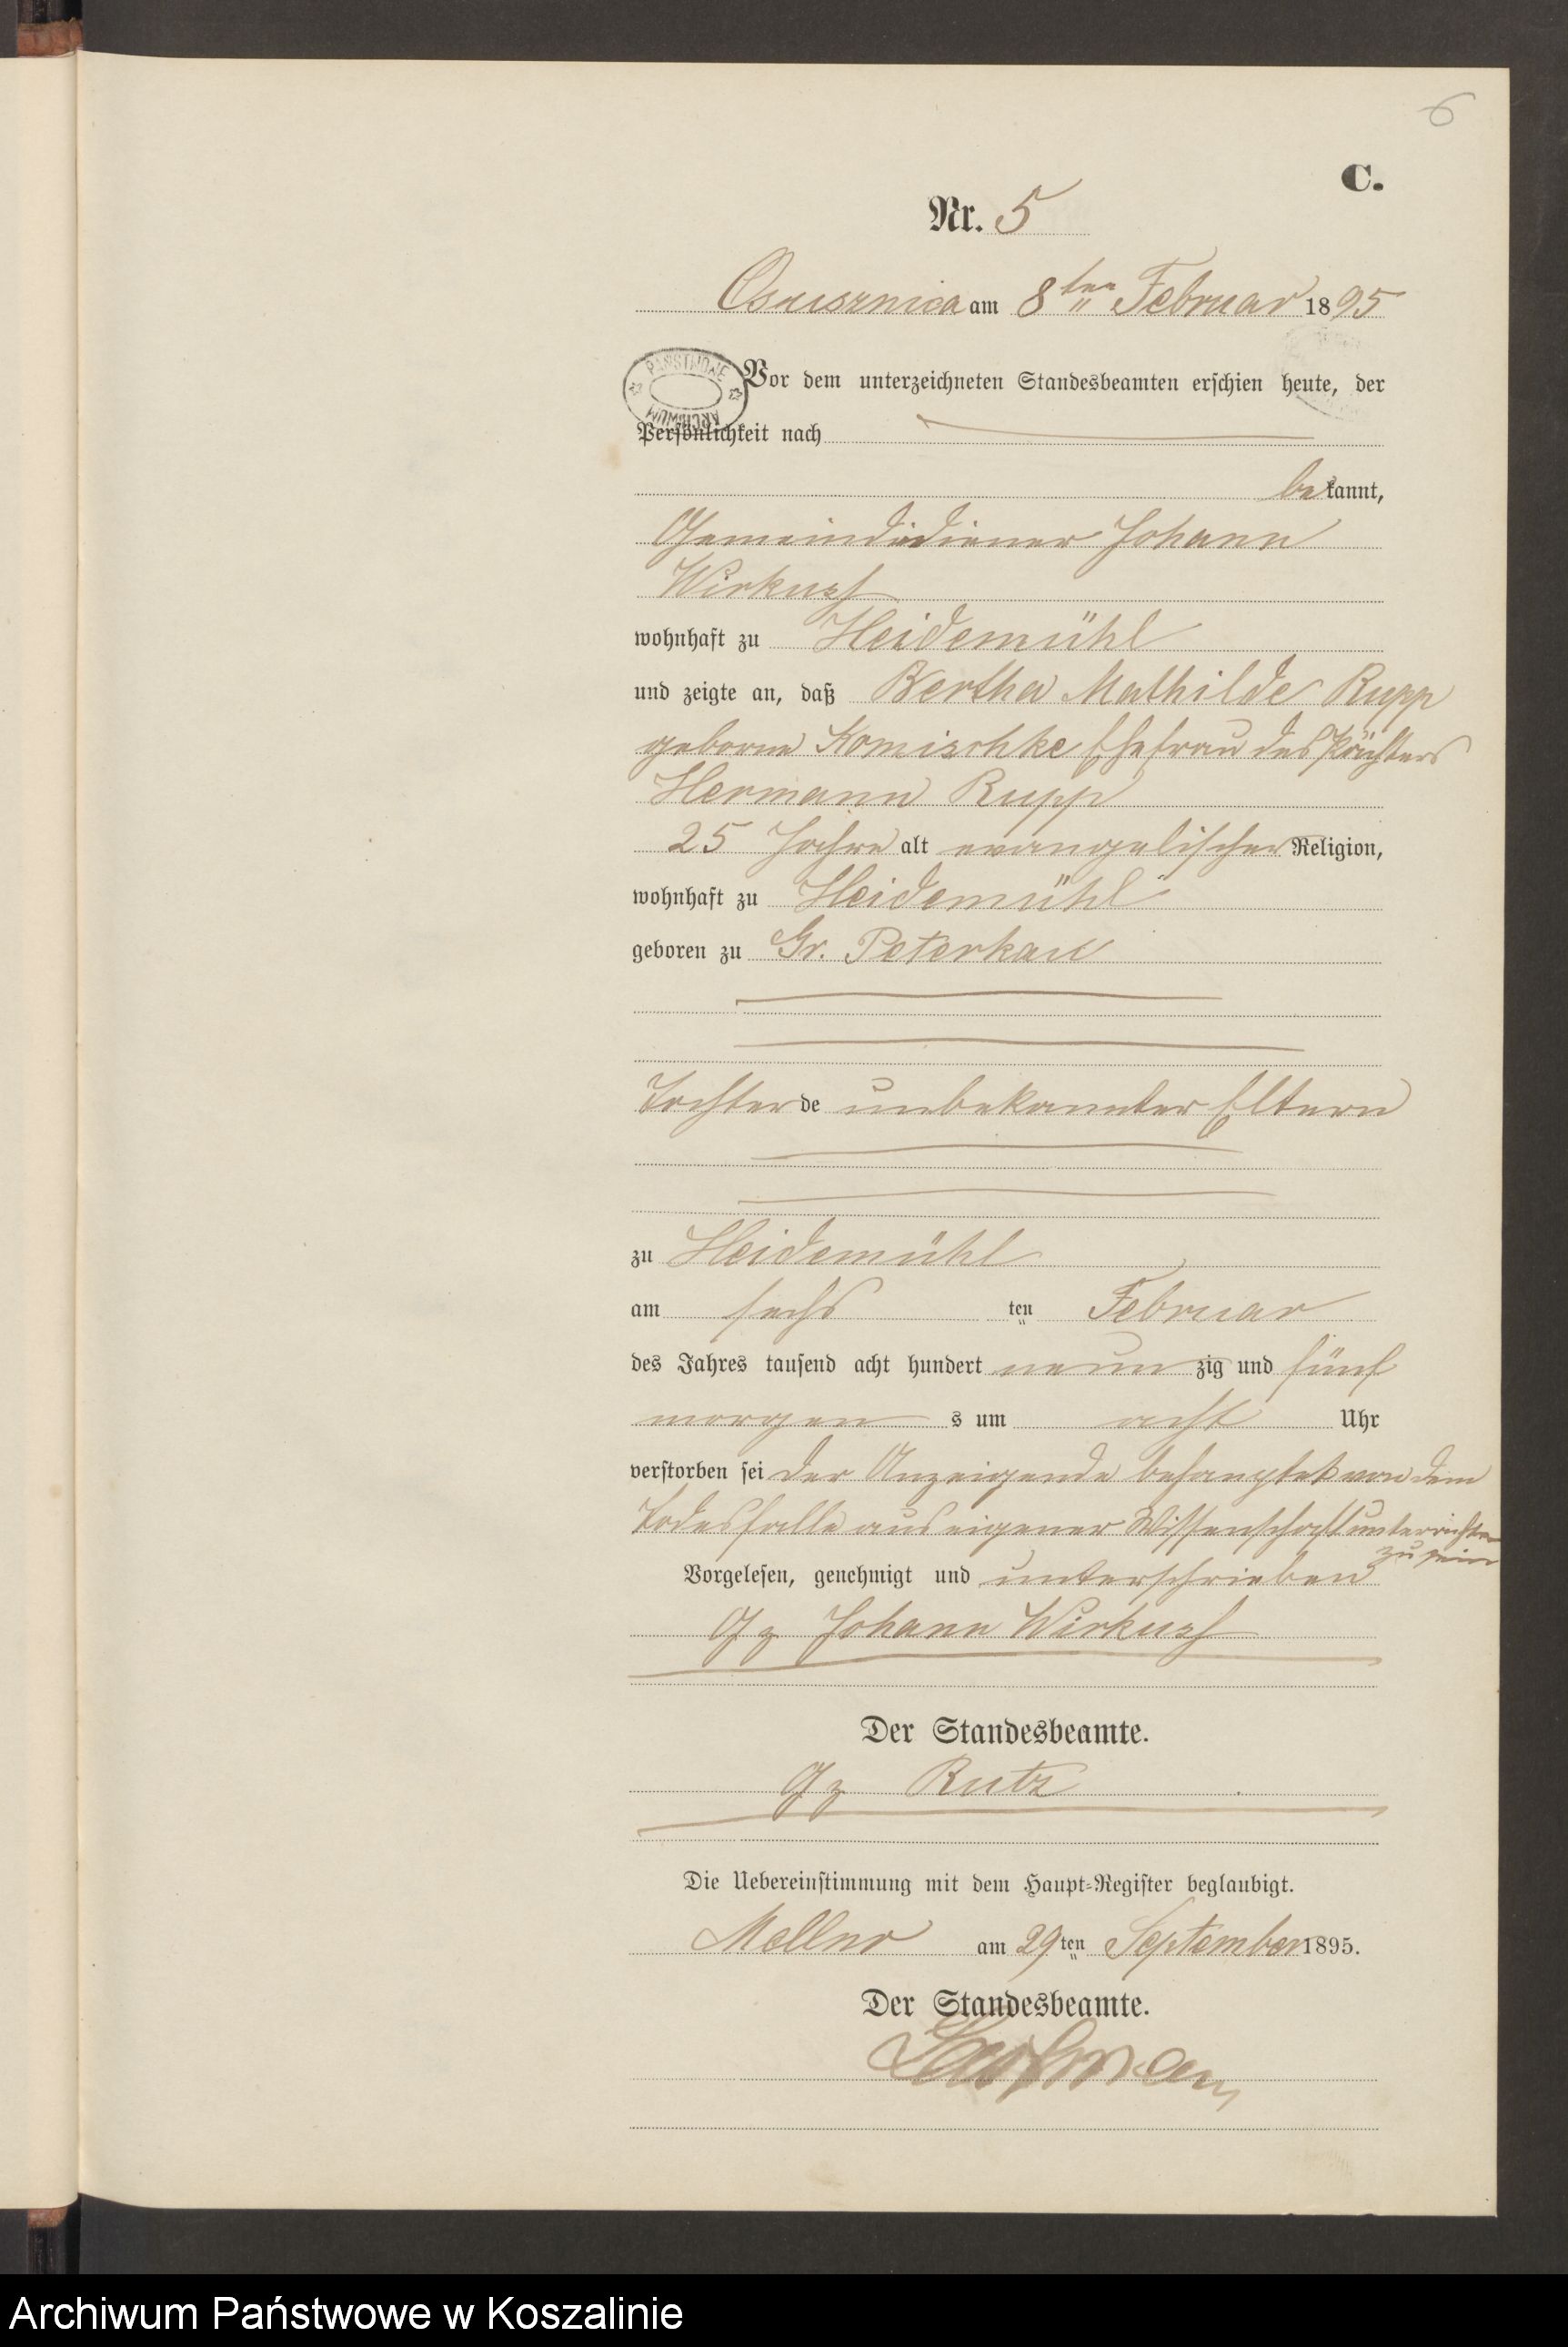 6
C.
Nr. 5
Osusznica am 8ten Februar 1895
PAŃSTWOWE ARCHIWUM
Vor dem unterzeichneten Standesbeamten erschien heute, der
Persönlichkeit nach
bekannt,
Gemeindediener Johann
Wirkus
wohnhaft zu Heidemühl
und zeigte an, daß Bertha Mathilde Rupp
geborne Komischke Ehefrau des Pächters
Hermann Rupp
25 Jahre alt evangelischer Religion,
wohnhaft zu Heidemühl
geboren zu Gr. Peterkau
Tochter de unbekannter Eltern
zu Heidemühl
am sechs ten Februar
des Jahres tausend acht hundert neun zig und fünf
morgen s um acht Uhr
verstorben sei der Anzeigende behauptet von dem
Todesfalle aus eigener Wissenschaft unterrichtet
zu sein
Vorgelesen, genehmigt und unterschrieben
Gz Johann Wirkus
Der Standesbeamte.
Gz Rutz
Die Uebereinstimmung mit dem Haupt-Register beglaubigt.
am 29ten September 1895.
Der Standesbeamte.
Archiwum Państwowe w Koszalinie